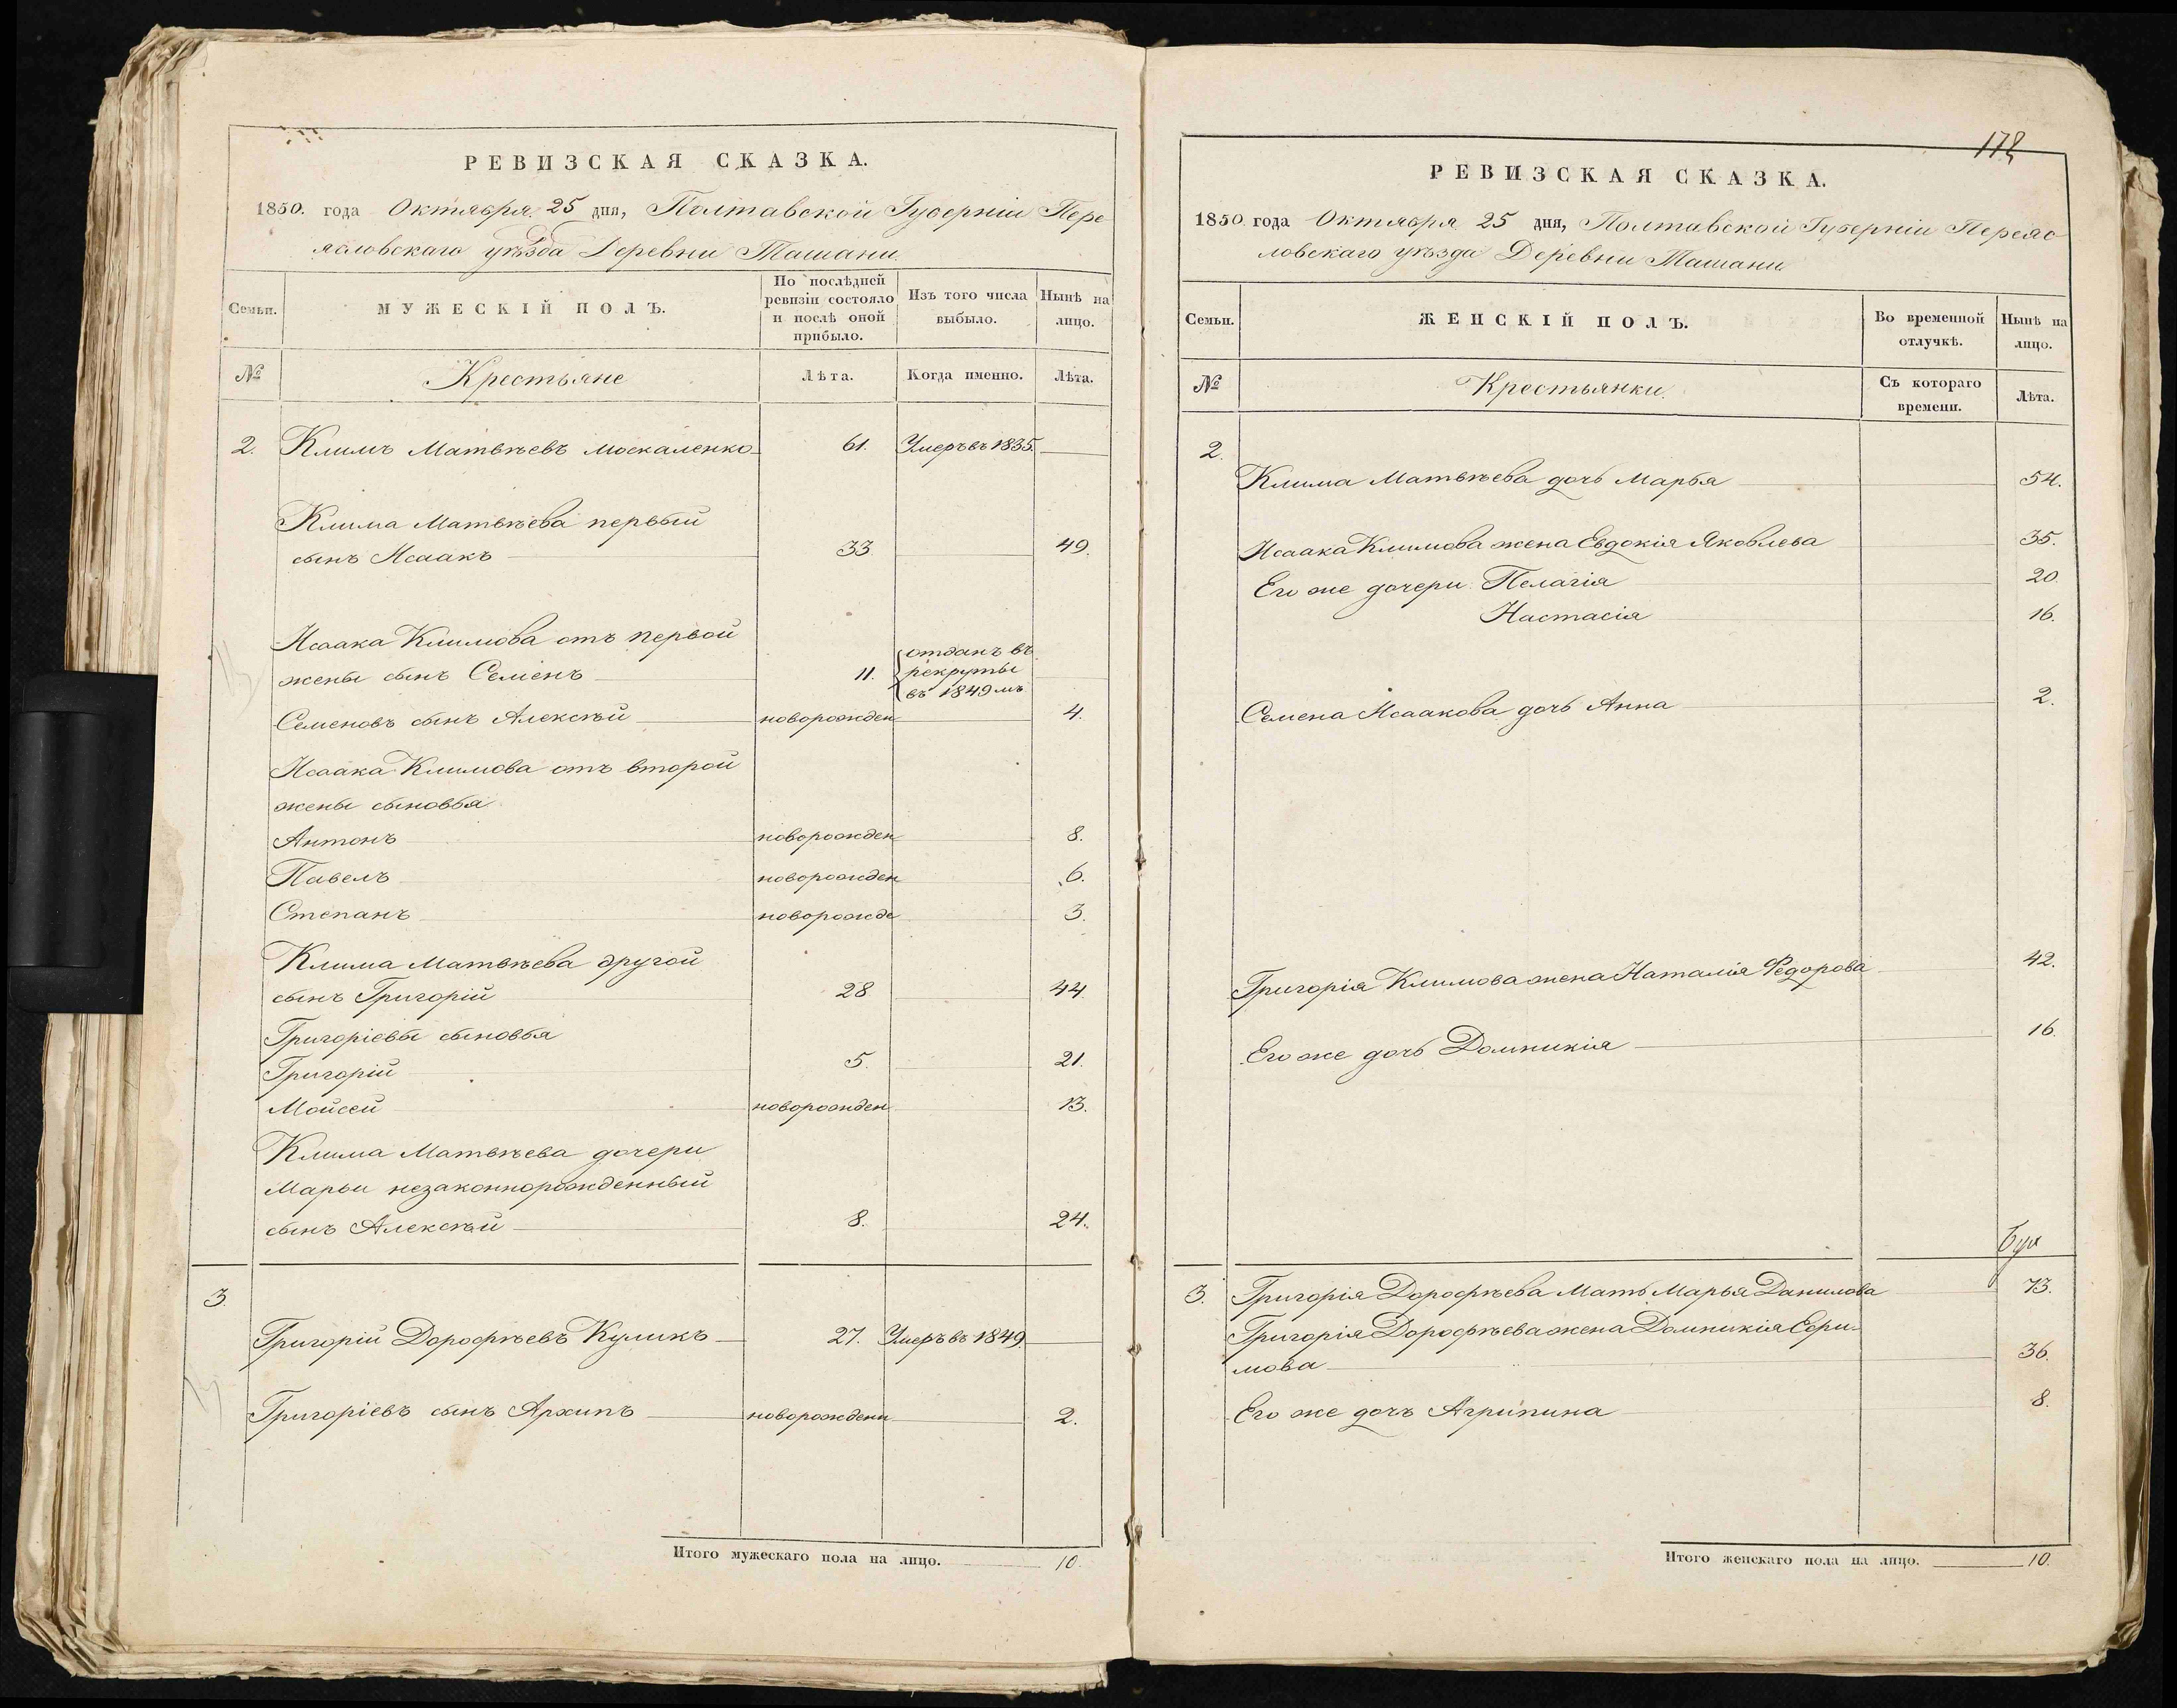 РЕВИЗСКАЯ СКАЗКА.
1850. года Октября 25 дня, Полтавской Губерніи Пере
ясловскаго уѣзда Деревни Ташани.
Семьи. МУЖЕСКІЙ ПОЛЪ. По послѣдней ревизіи состояло и послѣ оной прибыло. Изъ того числа выбыло. Нынѣ на лицо.
№ Крестьяне Лѣта. Когда именно. Лѣта.
2. Климъ Матвѣевъ Москаленко 61. Умеръ въ 1835.
Клима Матвѣева первый
сынъ Исаакъ 33 49.
Исаака Климова отъ первой
жены сынъ Семенъ 11. отданъ въ рекруты въ 1849 мъ
Семеновъ сынъ Алексѣй новорожден 4.
Исаака Климова отъ второй
жены сыновья
Антонъ новорожден 8.
Павелъ новорожден 6.
Степанъ новорожде 3.
Клима Матвѣева другой
сынъ Григорій 28 44
Григоріевы сыновья
Григорій 5. 21.
Мойсей новорожден 13.
Клима Матвѣева дочери
Марьи незаконнорожденный
сынъ Алексѣй 8. 24.
3.
Григорій Дорофѣевъ Куликъ 27. Умеръ въ 1849.
Григоріевъ сынъ Архипъ новорожденн 2.
Итого мужескаго пола на лицо. 10.
178
РЕВИЗСКАЯ СКАЗКА.
1850 года Октября 25 дня, Полтавской Губерніи Переяс
ловскаго уѣзда Деревни Ташани
Семьи. ЖЕНСКІЙ ПОЛЪ. Во временной отлучкѣ. Нынѣ на лицо.
№ Крестьянки. Съ котораго времени. Лѣта.
2.
Клима Матвѣева дочь Марья 54.
Исаака Климова жена Евдокія Яковлева 35.
Его же дочери Пелагія 20.
Настасія 16.
Семена Исаакова дочь Анна 2.
Григорія Климова жена Наталія Федорова 42.
Его же дочь Домникія 16.
3. Григорія Дорофѣева Мать Марья Данилова 73.
Григорія Дорофѣева жена Домникія Ефи-
мова 36.
Его же дочь Агрипина 8.
Итого женскаго пола на лицо. 10.